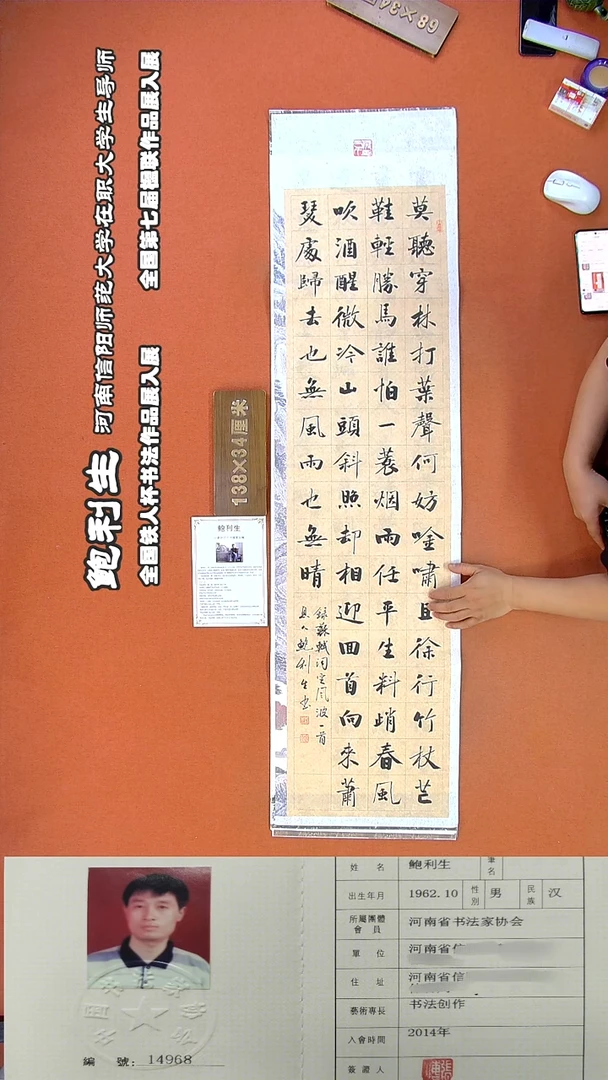 鲍利生 河南信阳师范大学在职大学生导师
全国铁人杯书法作品展入展 全国第七届楹联作品展入展
68×34
138×34厘米
鲍利生
莫聽穿林打葉聲何妨唫嘯且徐行竹杖芒
鞋輕勝馬誰怕一蓑烟雨任平生料峭春風
吹酒醒微冷山頭斜照却相迎回首向來蕭
瑟處歸去也無風雨也無晴
録蘇軾词定風波一首
鲍利生书
編 號: 14968
姓 名 鲍利生 筆名
出生年月 1962.10 性別 男 民族 汉
所屬團體會員 河南省书法家协会
單 位 河南省信
住 址 河南省信
藝術專長 书法创作
入會時間 2014年
簽證人